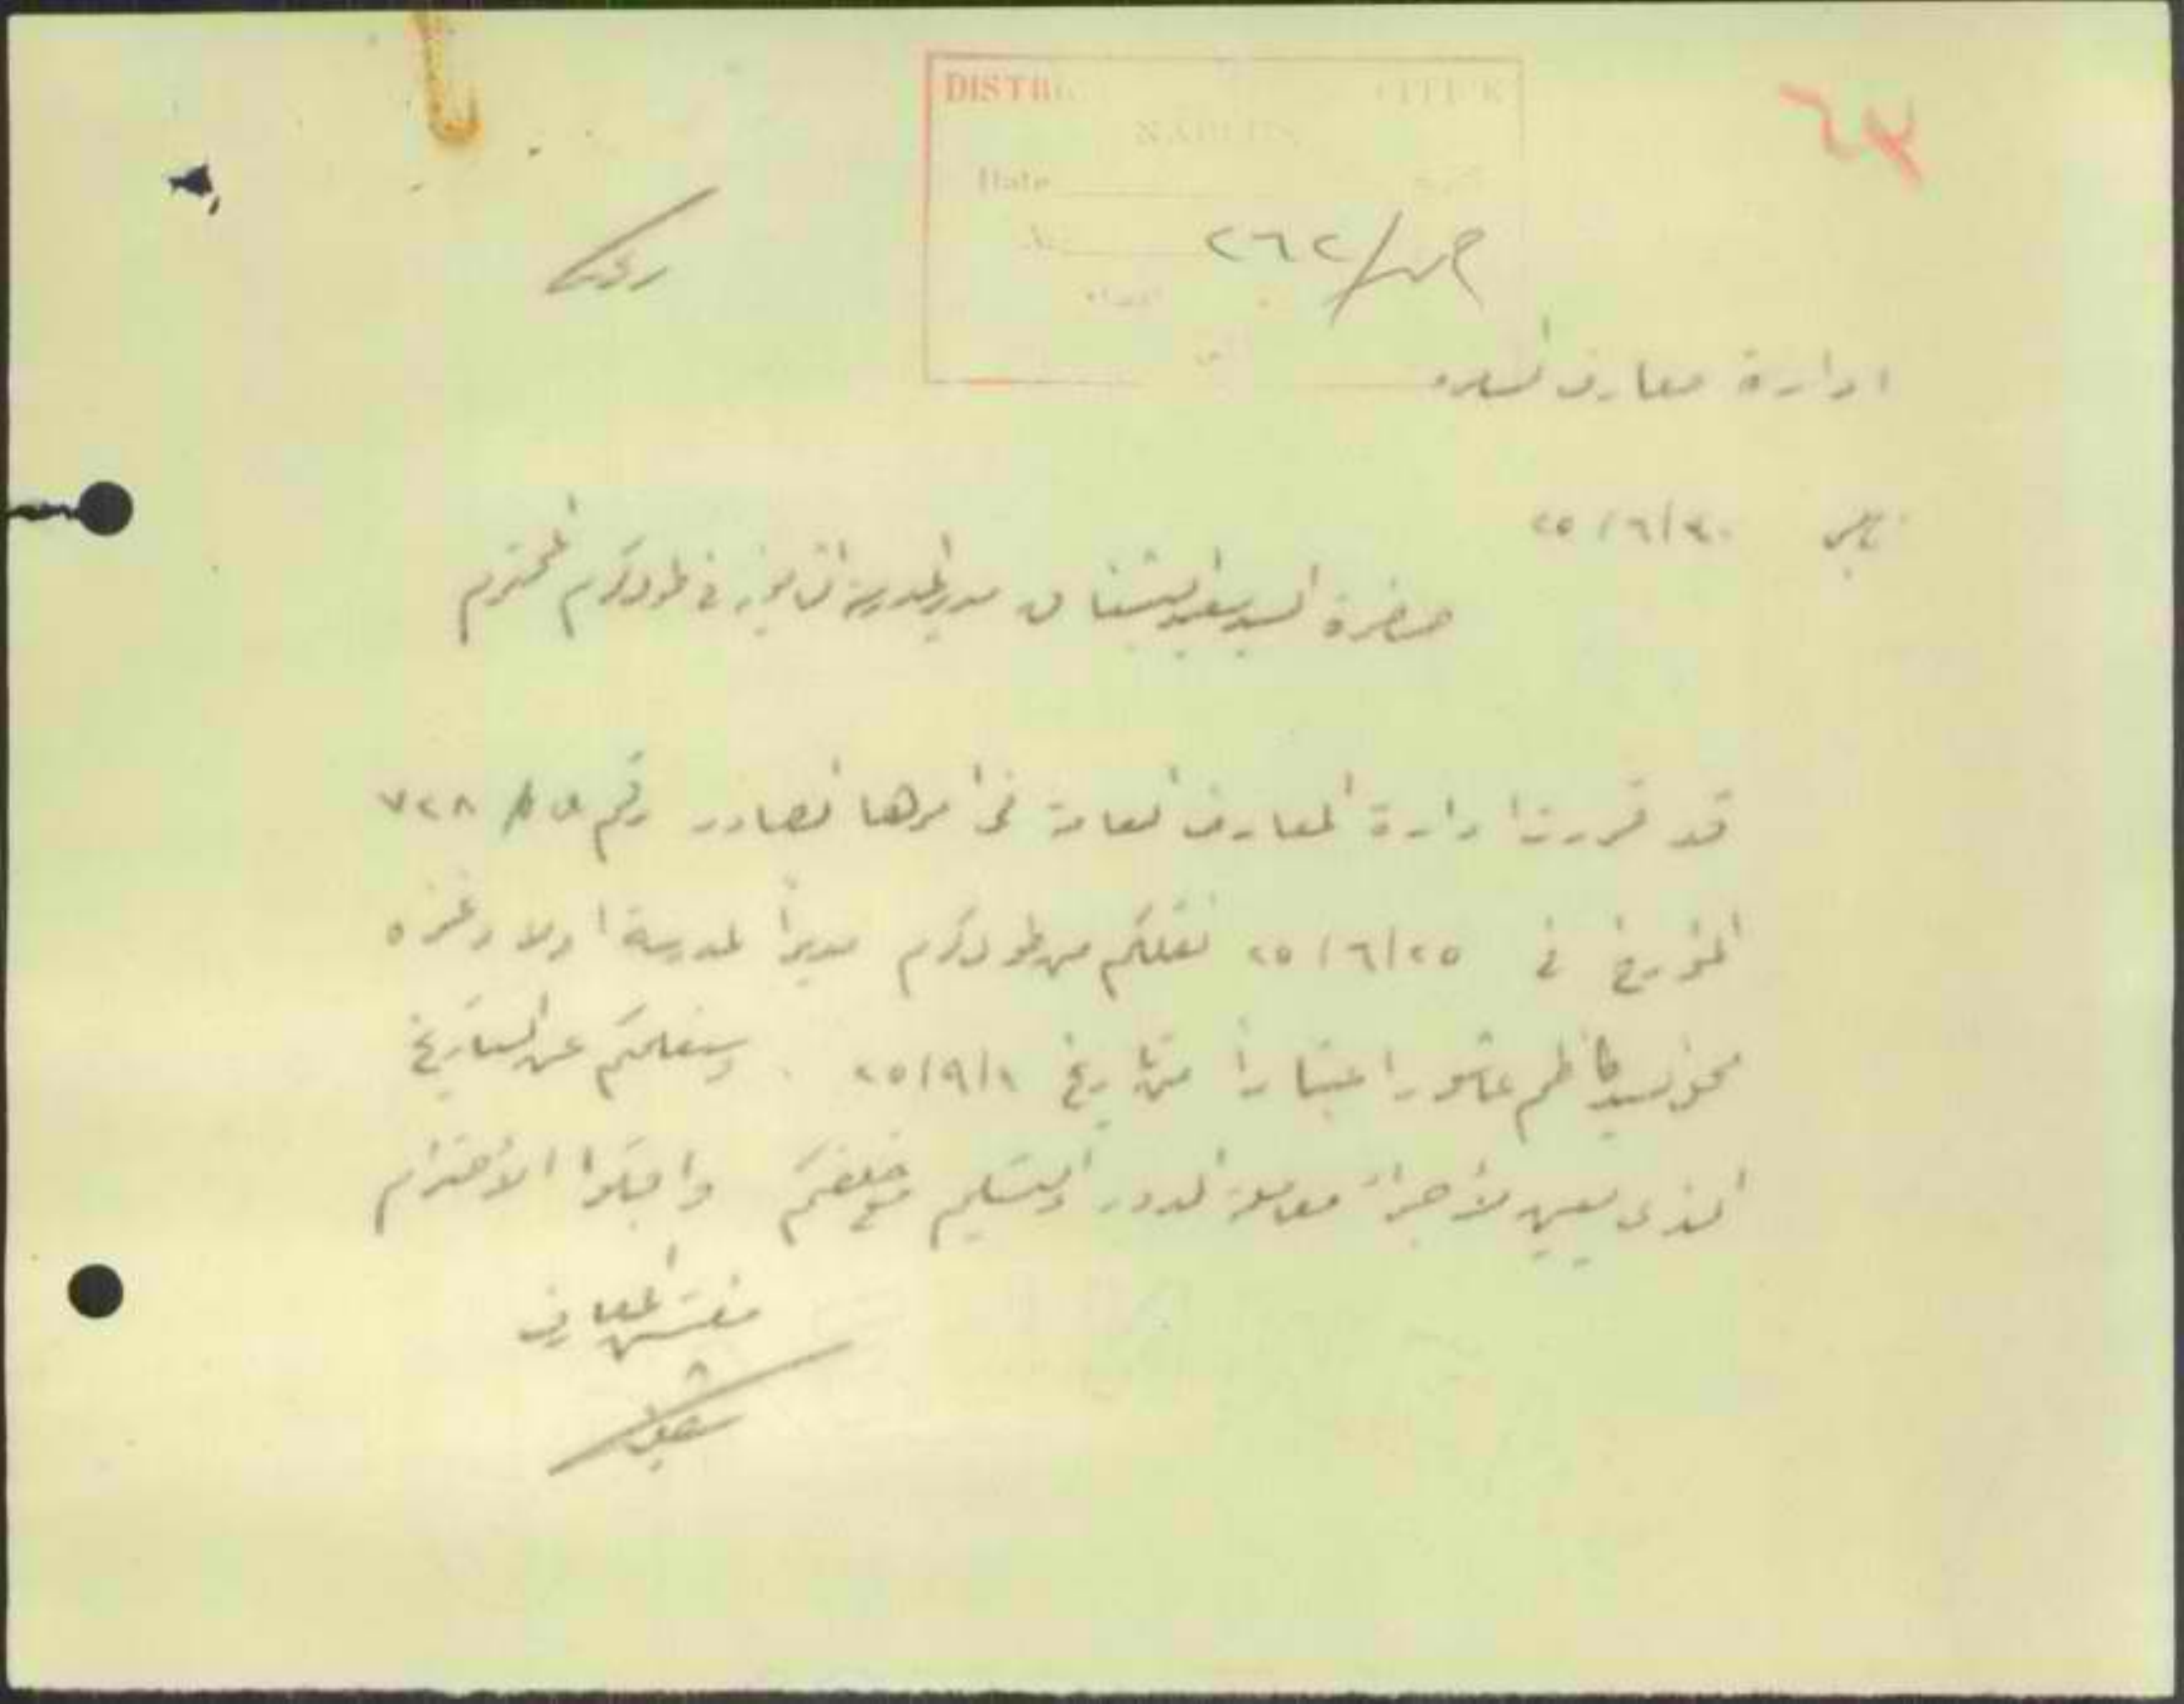 ٦٣
DISTRI OFFICE
NABLUS
Date
٢٦٢/
ادارة معارف السامره
نابلس ٢٥/٦/٣٠
حضرة السيد سعيد البشناق مدير المدرسة الثانويه في طولكرم المحترم
قد قررت ادارة المعارف العامة في امرها الصادر رقم ٧٢٨
المؤرخ في ٢٥/٦/٢٥ نقلكم من طولكرم مديرًا لمدرسة اولاد غزه
محل السيد كاظم عاشور اعتبارًا من تاريخ ٢٥/٩/١ . وسنعلمكم عن التاريخ
الذي يعين لأجراء معاملة الدور والتسليم مع خلفكم واقبلوا الأحترام
مفتش المعارف